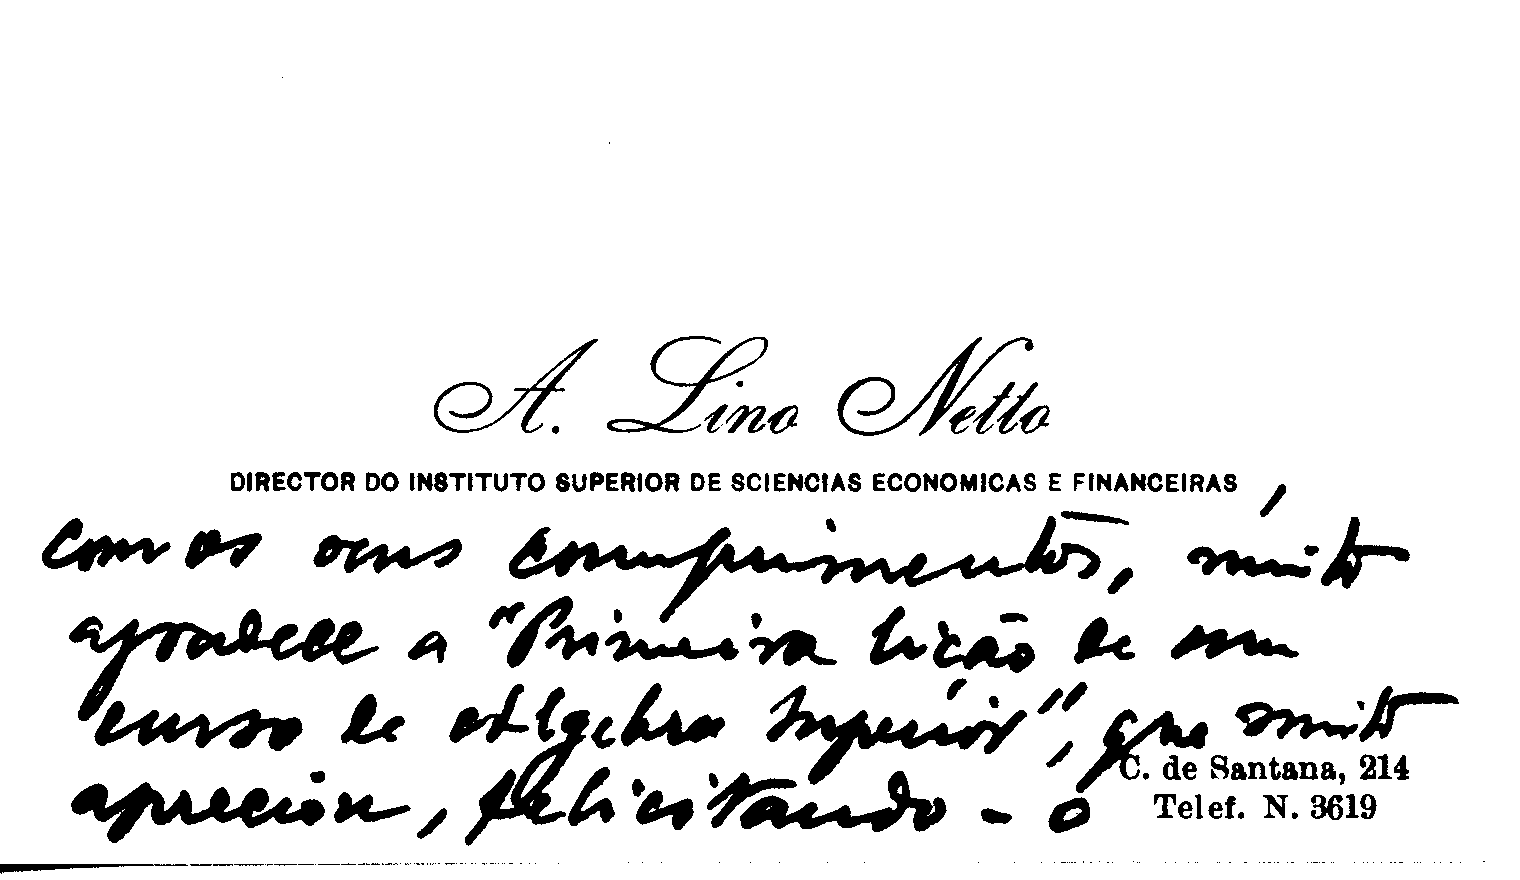 A. Lino Netto
DIRECTOR DO INSTITUTO SUPERIOR DE SCIENCIAS ECONOMICAS E FINANCEIRAS,
com os seus cumprimentos, muito
agradece a "Primeira lição de um
curso de Algebra Superior", que muito
apreciou, felicitando-o
C. de Santana, 214
Telef. N. 3619